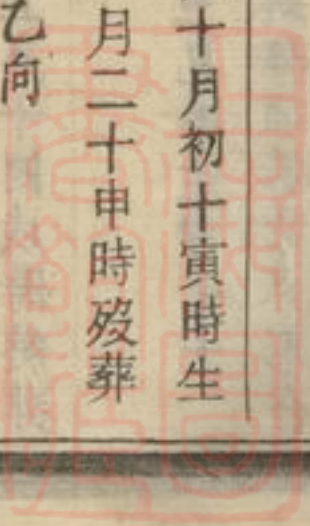 十月初十寅時生
月二十申時殁葬
乙向